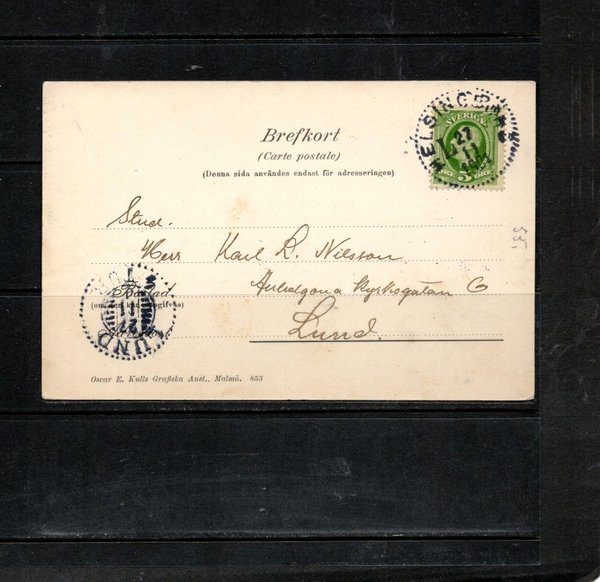 HELSINGBORG
SVERIGE
27
11
5 ÖRE
Brefkort
(Carte postale)
(Denna sida användes endast för adresseringen)
Stud.
Herr Karl R. Nilsson
Kyrkogatan 6
Lund.
Bostad
(om den kan uppgifvas)
LUND
11
Oscar E. Kulls Grafiska Anst., Malmö. 853